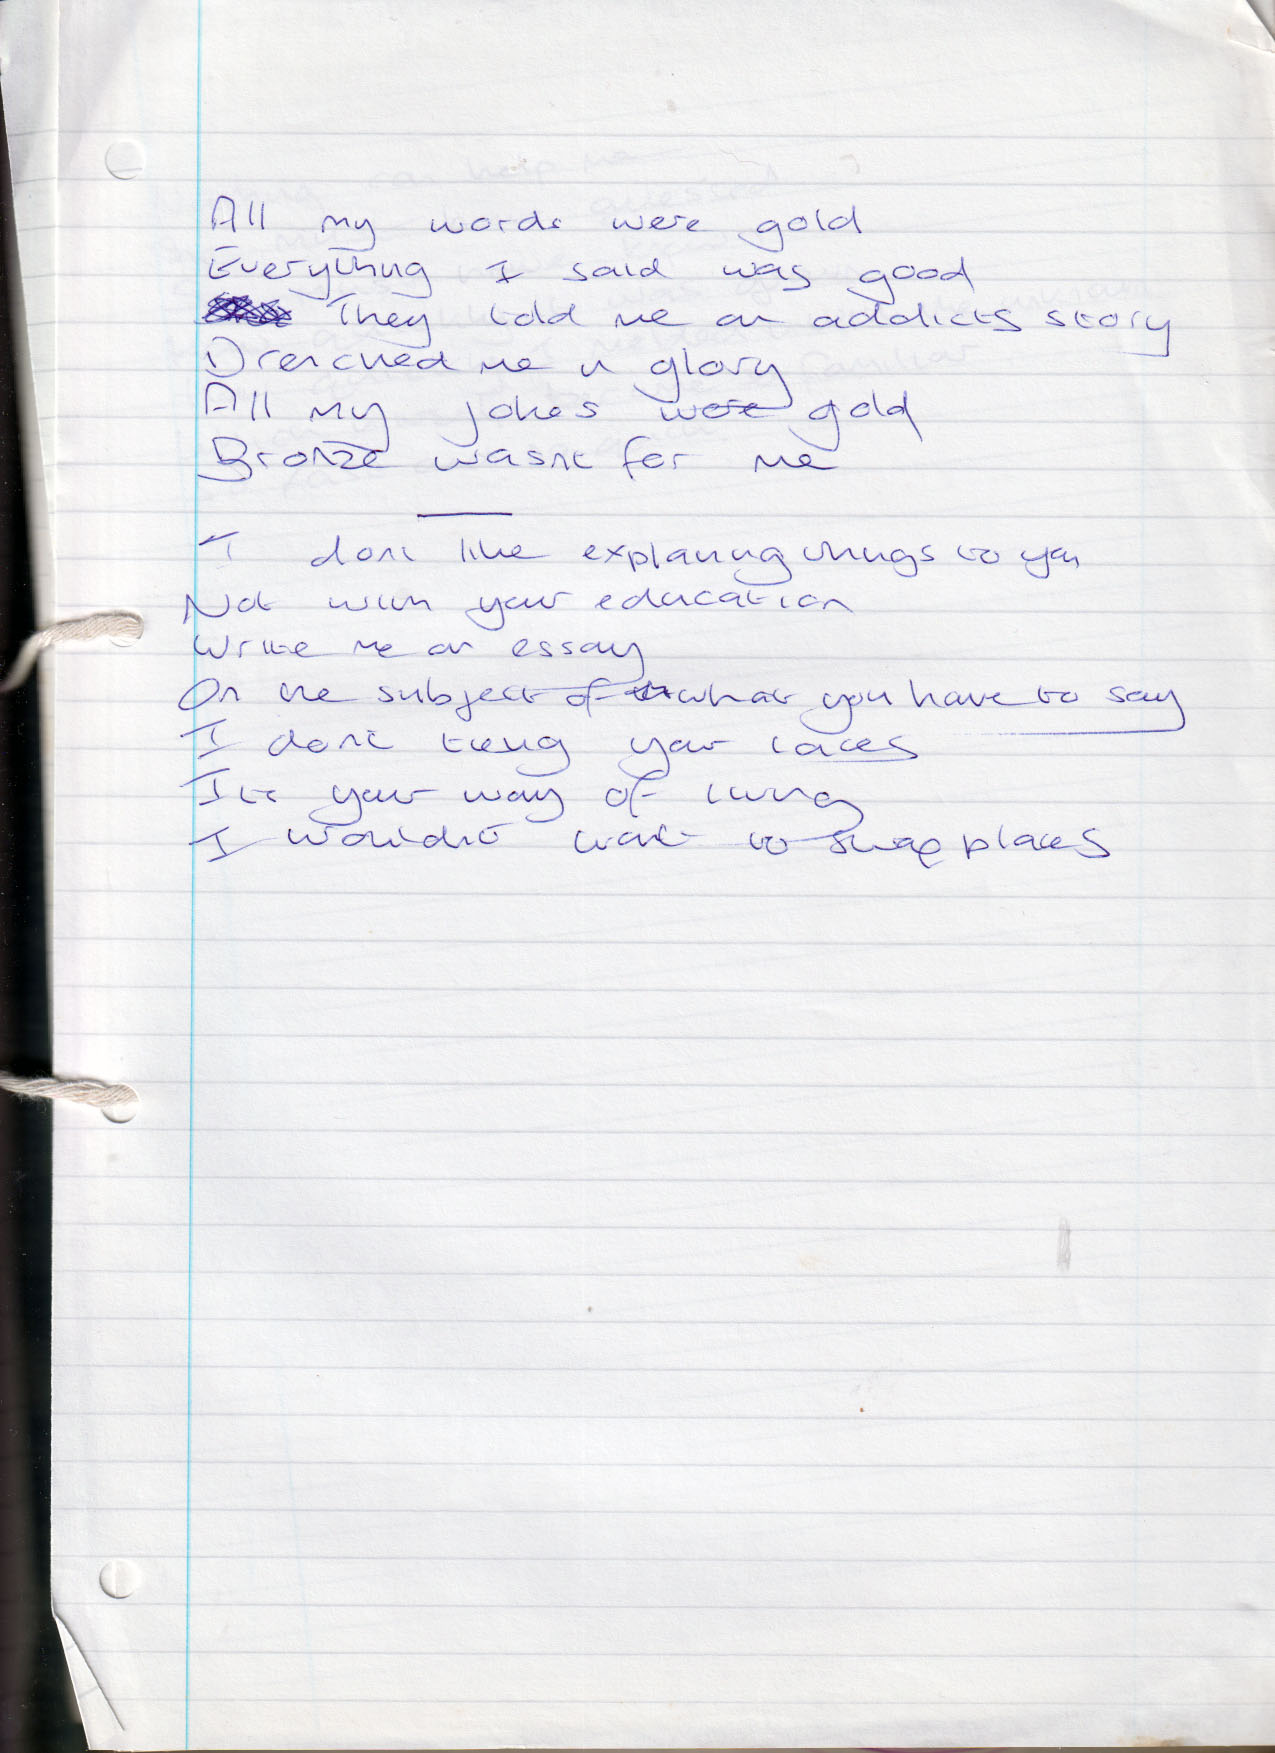 All my words were gold
Everything I said was good
They told me an addicts story
Drenched me in glory
All my jokes were gold
Bronze wasnt for me
I dont like explaining things to you
Not with your education
Write me an essay
On the subject of what you have to say
I dont your laces
Its your way of living
I wouldnt want to swap places